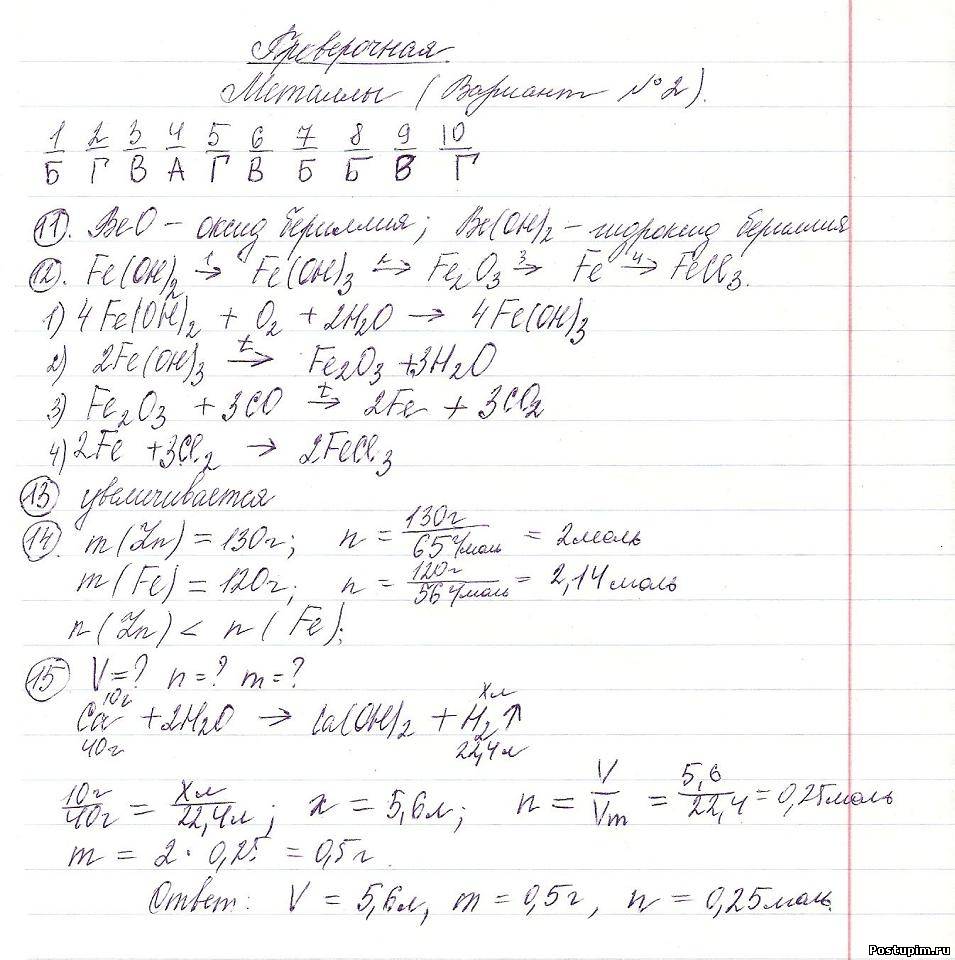 Проверочная
Металлы (Вариант №2).
1 2 3 4 5 6 7 8 9 10
Б Г В А Г В Б Б В Г
11. BeO – оксид бериллия; Be(OH)2 – гидроксид бериллия
12. Fe(OH)2 →1 Fe(OH)3 →2 Fe2O3 →3 Fe →4 FeCl3.
1) 4Fe(OH)2 + O2 + 2H2O → 4Fe(OH)3
2) 2Fe(OH)3 →t Fe2O3 + 3H2O
3) Fe2O3 + 3CO →t 2Fe + 3CO2
4) 2Fe + 3Cl2 → 2FeCl3
13 увеличивается
14. m(Zn) = 130г; n = 130г / 65г/моль = 2моль
m(Fe) = 120г; n = 120г / 56г/моль = 2,14моль
n(Zn) < n(Fe);
15 V=? n=? m=?
10г хл
Ca + 2H2O → Ca(OH)2 + H2↑
40г 22,4л
10г/40г = хл/22,4л; x = 5,6л; n = V/Vm = 5,6/22,4 = 0,25моль
m = 2 · 0,25 = 0,5г.
Ответ: V = 5,6л, m = 0,5г, n = 0,25моль.
Postupim.ru